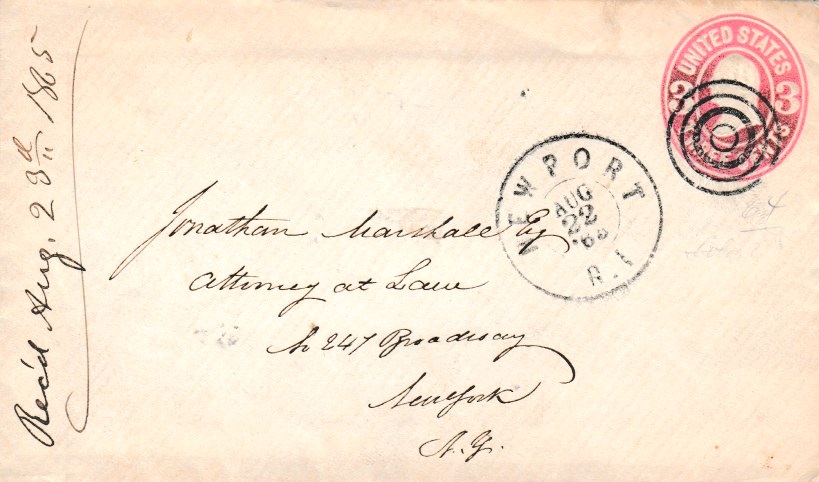 Rec'd Aug. 23d 1865
UNITED STATES
3 3
NEWPORT
AUG
22
R.I
Jonathan Marshall Esq
Attorney at Law
No 247 Broadway
New York
N.Y.